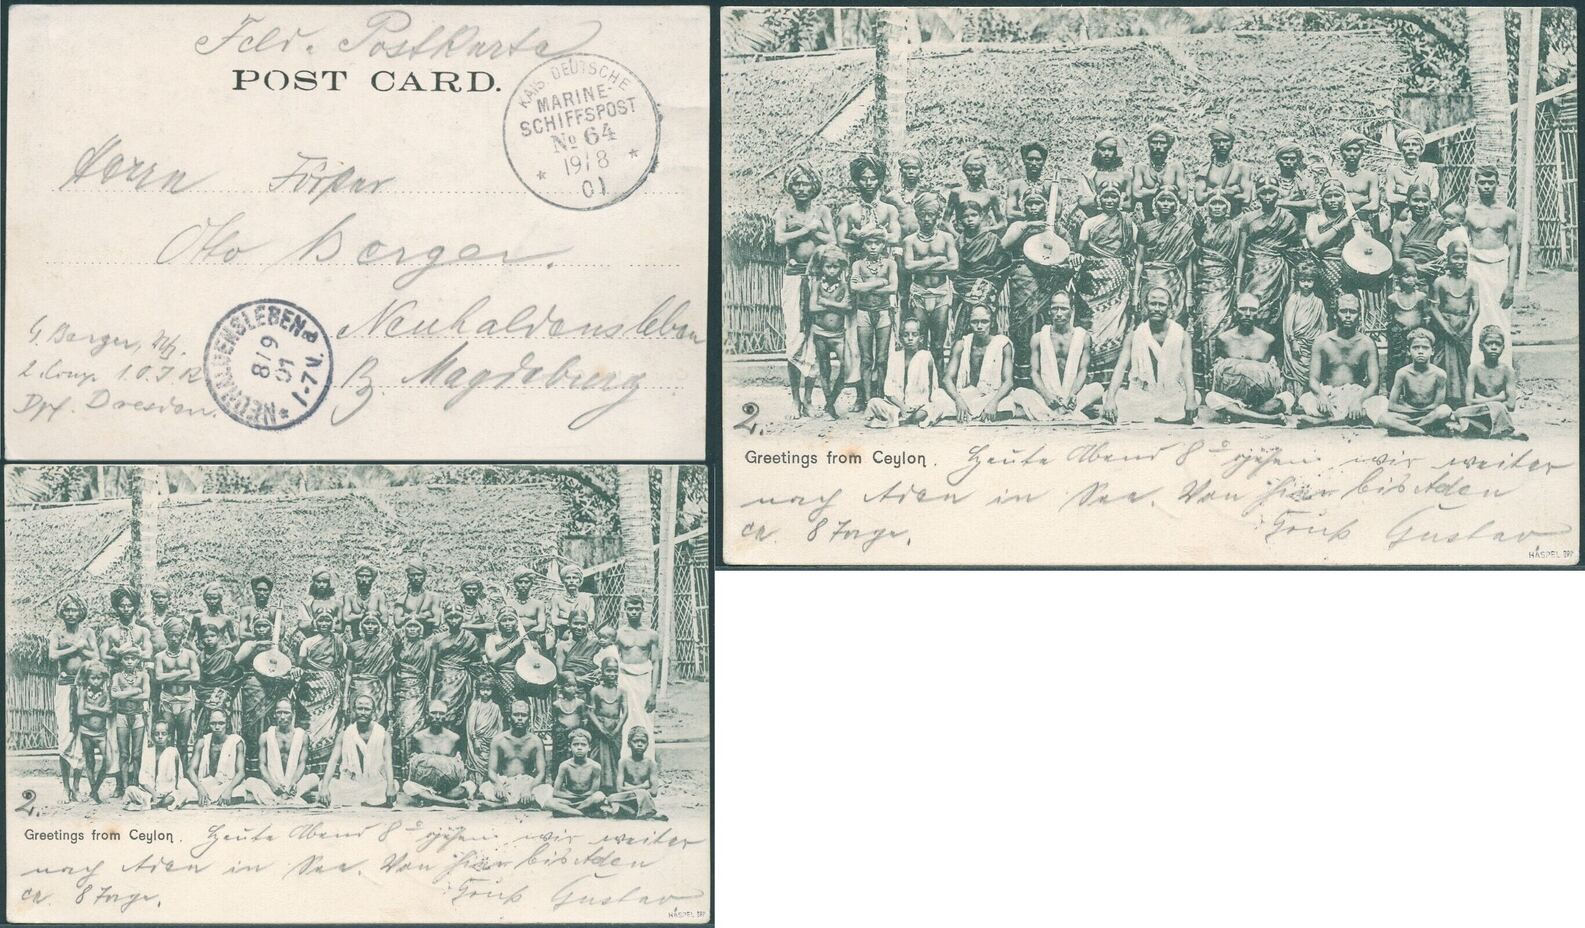 Feld-Postkarte
POST CARD.
KAIS. DEUTSCHE
MARINE-
SCHIFFSPOST
No 64
19/8
01
Herrn Förster
Otto Berger.
Neuhaldensleben
Bz. Magdeburg
G. Berger,
2. Comp. 1.O.J.R
Dpf. Dresden.
NEUHALDENSLEBEN
8/9
01
1-7V.
2.
Greetings from Ceylon. Heute Abend 8 gehen wir weiter
nach Aden in See. Von hier bis Aden
ca. 8 Tage.
Gruß Gustav
HASPEL
2.
Greetings from Ceylon. Heute Abend 8 gehen wir weiter
nach Aden in See. Von hier bis Aden
ca. 8 Tage.
Gruß Gustav
HASPEL